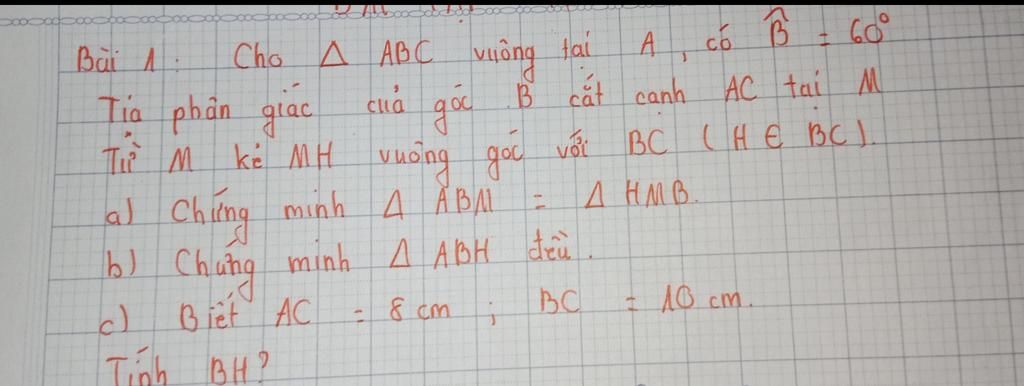 Bài 1: Cho Δ ABC vuông tại A, có B̂ = 60°
Tia phân giác của góc B cắt cạnh AC tại M
Từ M kẻ MH vuông góc với BC (H ∈ BC).
a) Chứng minh Δ ABM = Δ HMB.
b) Chứng minh Δ ABH đều.
c) Biết AC = 8 cm ; BC = 10 cm.
Tính BH?